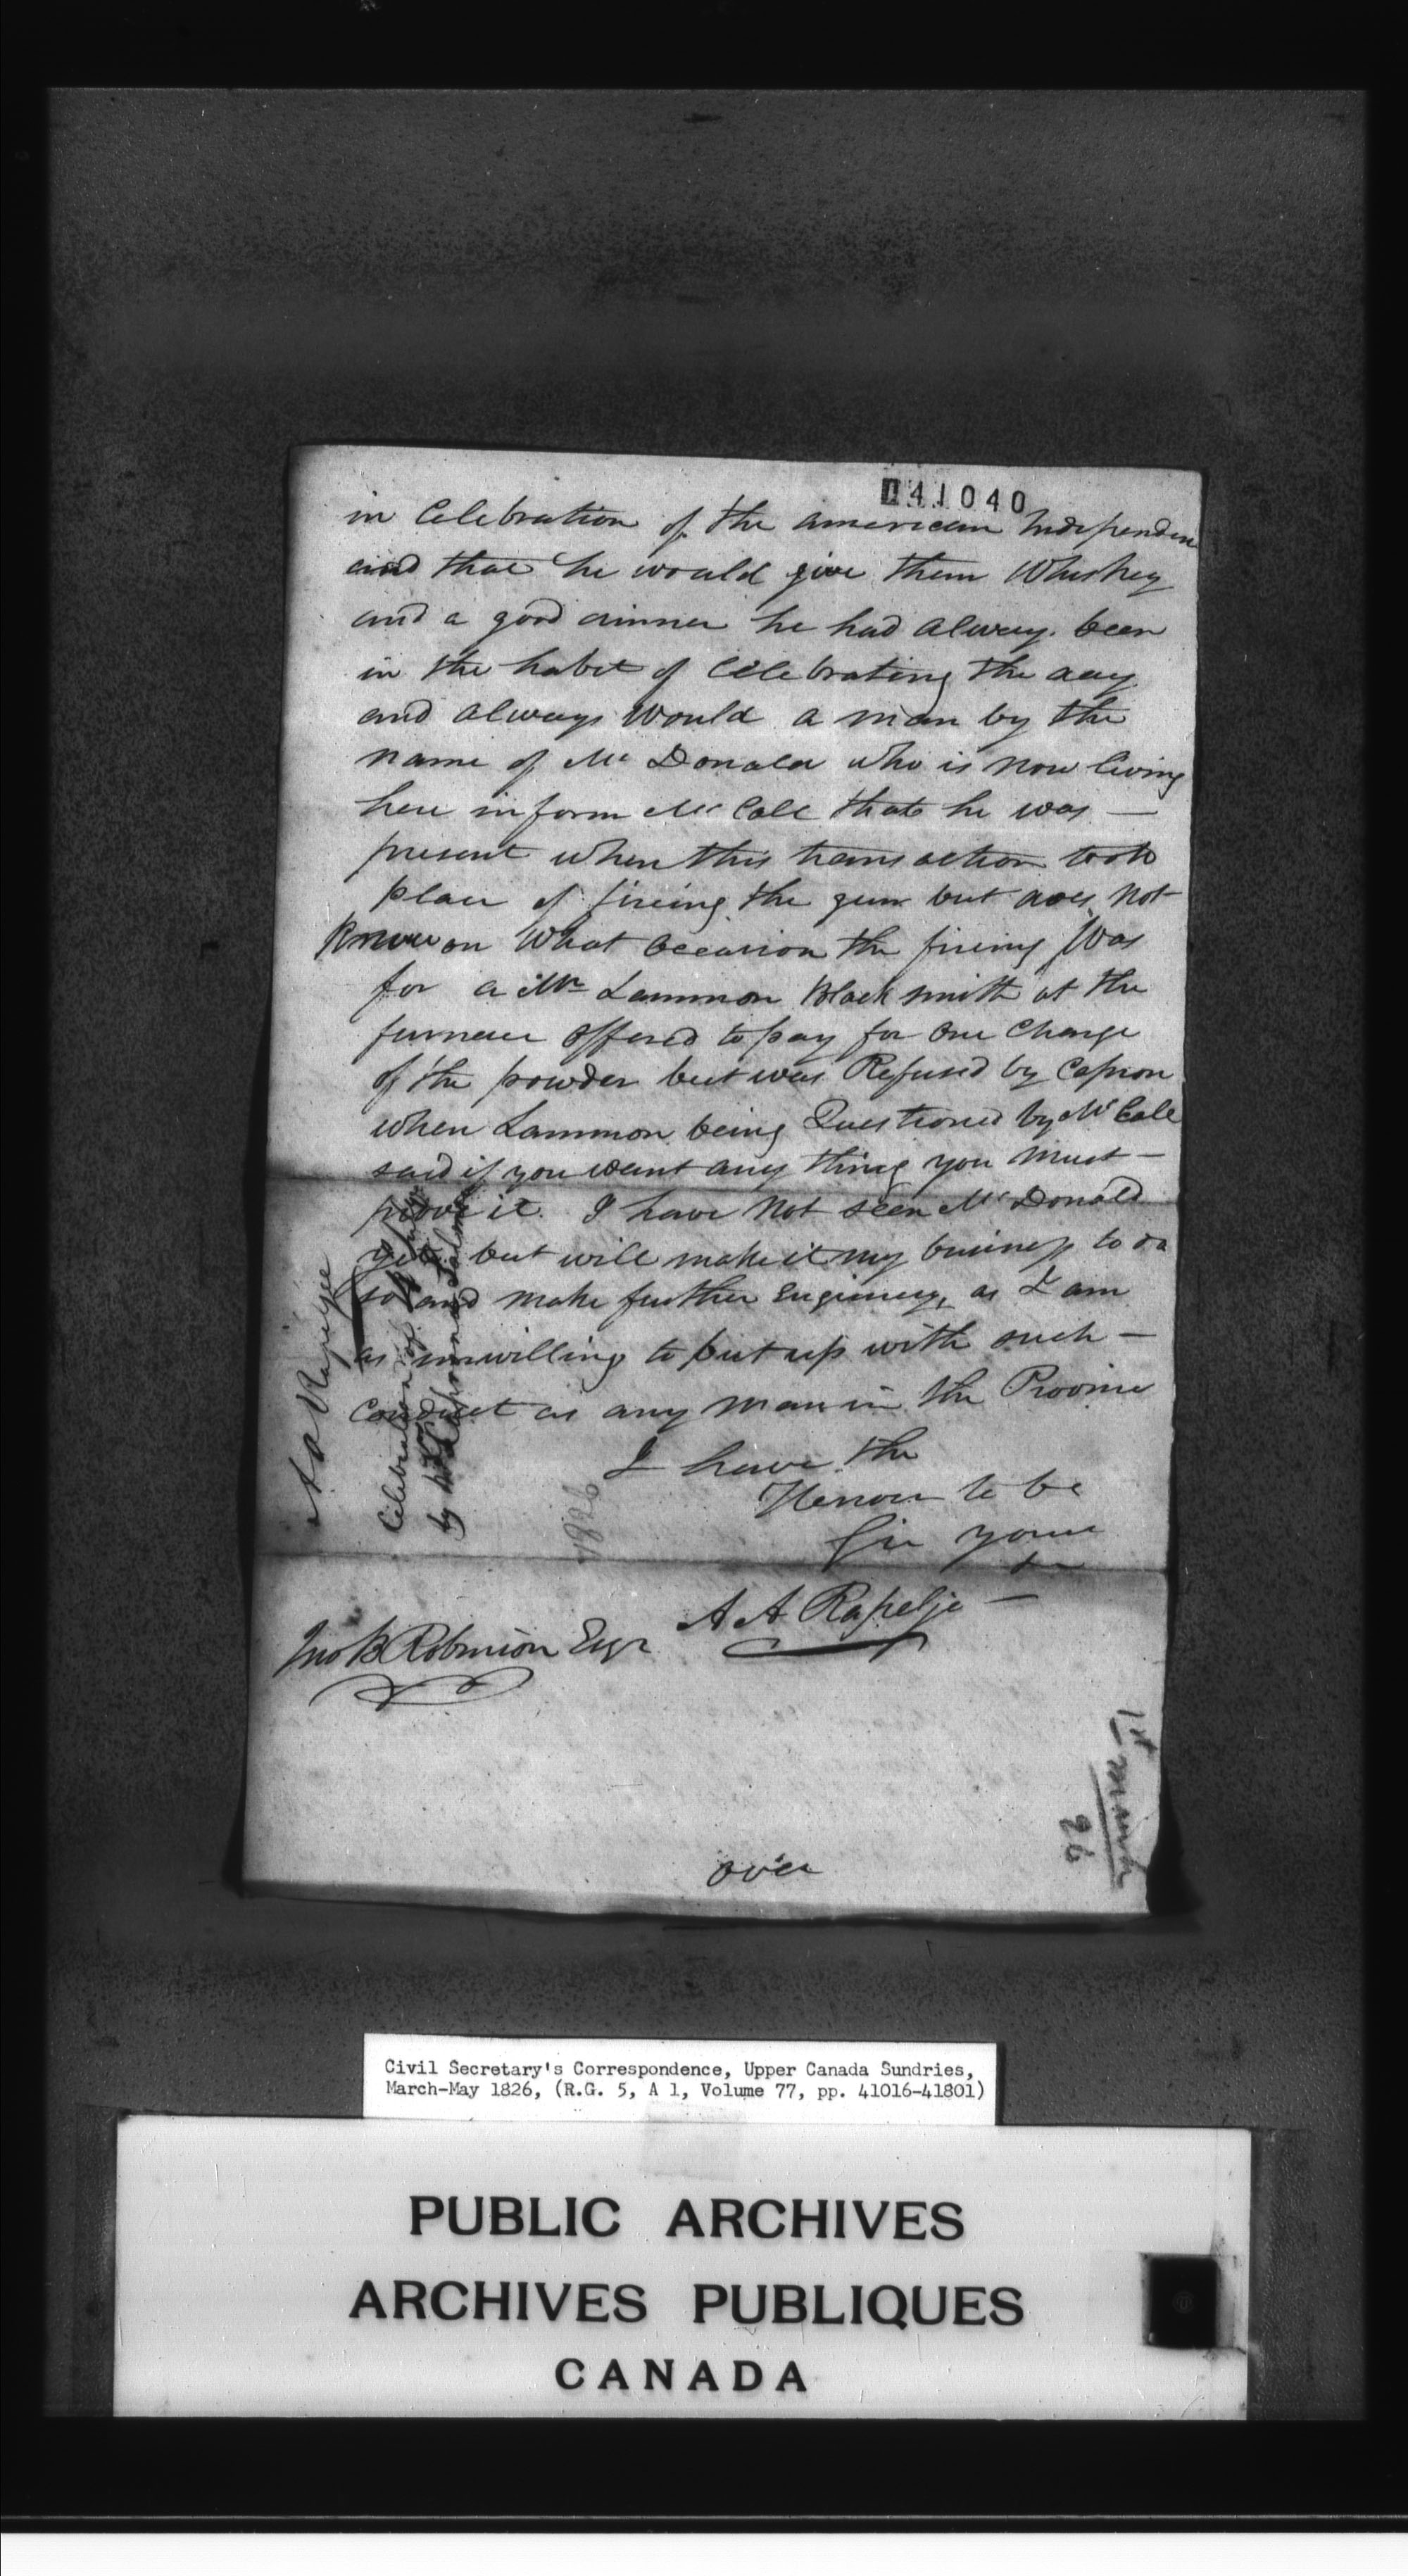 041040
in Celebration of the american Independen
and that he would give them Whiskey
and a good dinner he had alway been
in the habit of Celebrating the day
and always Would a man by the
name of Mc Donald who is now living
here inform Mc Call that he was —
present when this transaction took
place of fireing the gun but does not
Know on What occasion the fireing Was
for a Mr Lammon Black smith at the
furnace offered to pay for one Charge
of the powder but was Refused by Capron
when Lammon being Questioned by Mr Call
said if you want any thing you must —
prove it. I have Not seen Mc Donald
yet but will make it my business to do
so and make further Enquiery, as I am
as unwilling to put up with such —
Conduct as any man in the Province
I have the
Honour to be
Sir your
A A Rapelje —
Jno B Robinson Esqr
A A Rapelje
Celebration of
by
1826
over
26
Civil Secretary's Correspondence, Upper Canada Sundries,
March-May 1826, (R.G. 5, A 1, Volume 77, pp. 41016-41801)
PUBLIC ARCHIVES
ARCHIVES PUBLIQUES
CANADA